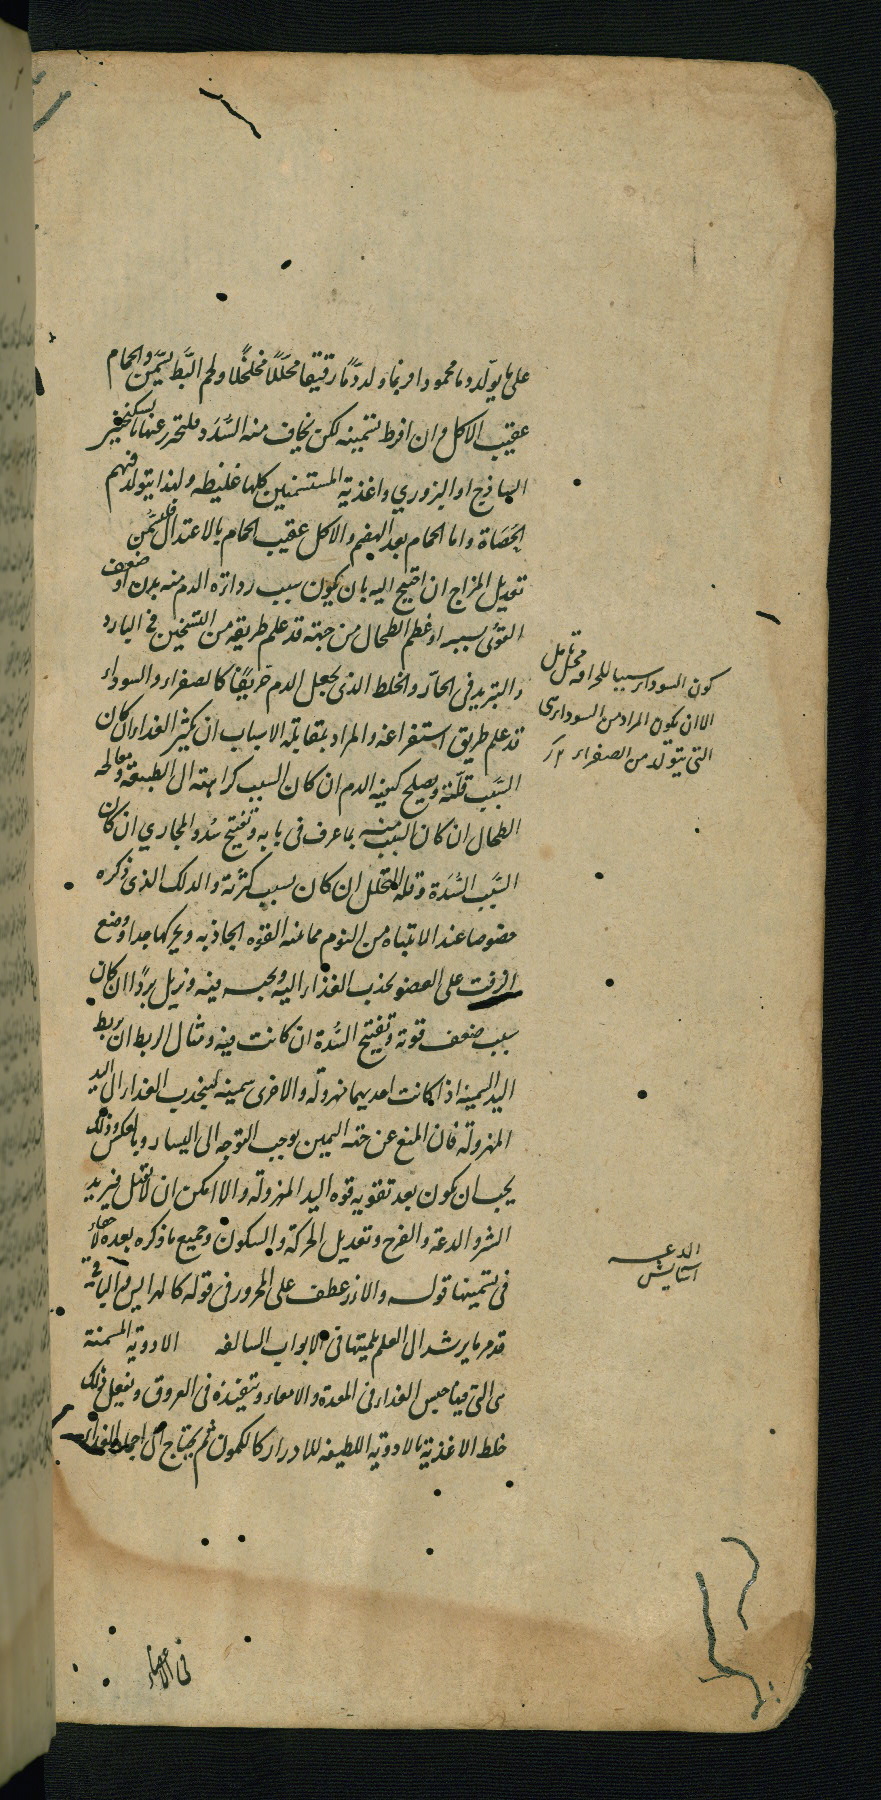 على ما يولد دما محمودا فربما ولد دمًا رقيقا محللًا مخلخلًا ولحم البَط يسَمّن والحمام
عقيب الاكل وان افرط تسمينه لكن يخاف منه السُدَد فليتحرز عنها بالسكنجبين
الساذج او البزوري واغذية المستسمنين كلها غليظه ولهذا يتولد فيهم
الحَصَاة واما الحمام بعد الهضم والاكل عقيب الحمام بالاعتدال فليسَمن
تعديل المزاج ان احتيج اليه بان يكون سبب رداءة الدم منه بدن او ضعف
القوى بسببه او عظم الطحال من جهته قد علم طريقه من التسخين في البارد
والتبريد في الحارّ والخلط الذى يجعل الدم حريفًا كالصفراء والسوداء
قد علم طريق استفراغه والمراد بمقابلة الاسباب ان يكثر الغذاء ان كان
السَبب قلّته ويصلح كيفية الدم ان كان السبب كراهته ال الطبيعة ومعالجه
الطحال ان كان السبب منه بما عرف فى بابه وتفتيح سُدد المجاري ان كان
السَبب السُّدَة وقلة التحلل ان كان بسبب كثرته والدلك الذى ذكره
خصوصا عند الانتباه من النوم مما ينبه القوه الجاذبه ويحركها جدا ووضع
الزفت على العضو يجذب الغذاء اليه ويحبسه فيه ويزيل بردًا ان كان
سبب ضعف قوته وتفتيح السُدة ان كانت فيه ومثال الربط ان يربط
اليد السمينه اذا كانت احديهما مهزوله والاخرى سمينه لينجذب الغذاء ال اليد
المهزولة فان المنع عن جهة اليمين يوجب التوجه الى اليسار وبالعكس وذلك
يجب ان يكون بعد تقويه قوه اليد المهزولة والا امكن ان لا تقبل فيزيد
الشر والدعة والفرح وتعديل الحركة والسكون وجميع ما ذكره بعده
فى تسمينها قوله والارز عطف على المحرور فى قوله كالهرايس والباقى
قد مر ما يرشد ال العلم بلميتها فى الابواب السالفه الادوية المسمنة
هى التى فيها حبس الغذاء فى المعدة والامعاء وتنفيذه فى العروق ويفعل ذلك
خلط الاغذية بالادوية اللطيفه للادرار كالكمون ثم يحتاج ال
فى الاعضاء
كون السوداء سببا للحرافه محل تامل
الا ان يكون المراد من السوداء هى
التى يتولد من الصفراء ١٢
الدعــه
آسایش